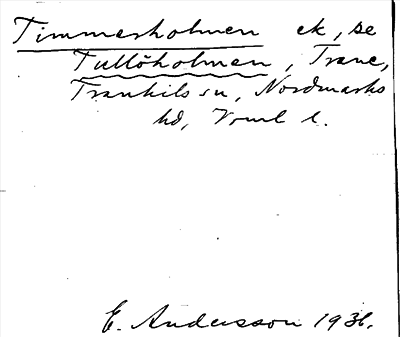 Timmerholmen ek, se
Tullöholmen, Trane,
Trankils sn, Nordmarks
hd, Vrml l.
E. Andersson 1936.